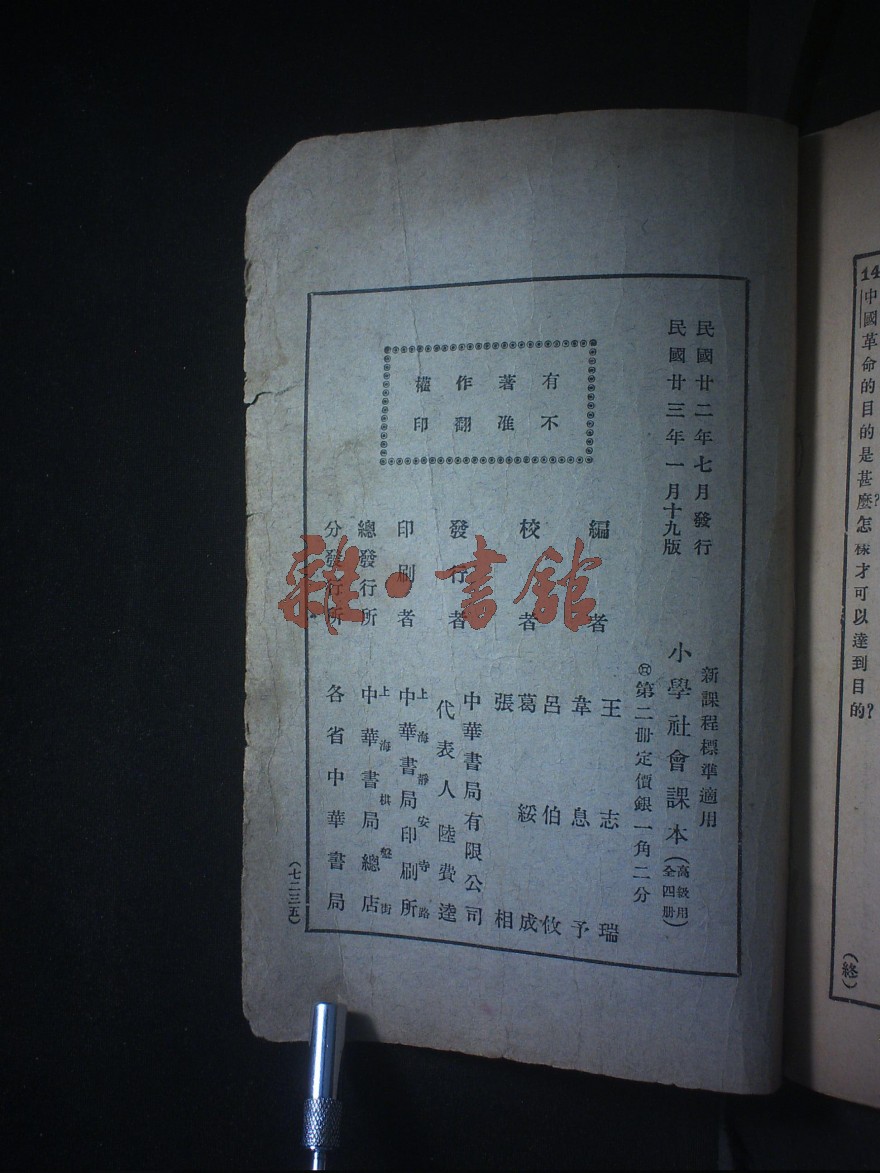 14中國革命的目的是甚麼?怎樣才可以達到目的?
(終)
民國廿二年七月發行
民國廿三年一月十九版
新課程標準適用
小學社會課本(高級用全四册)
第二册定價銀一角二分
有著作權
不准翻印
編者
王志瑞
韋息予
校者
呂伯攸
葛綏成
張相
發行者
中華書局有限公司
代表人陸費逵
印刷者
上海靜安寺路
中華書局印刷所
總發行所
上海棋盤街
中華書局總店
分發行所
各省中華書局
(七二三五)
雜·書館